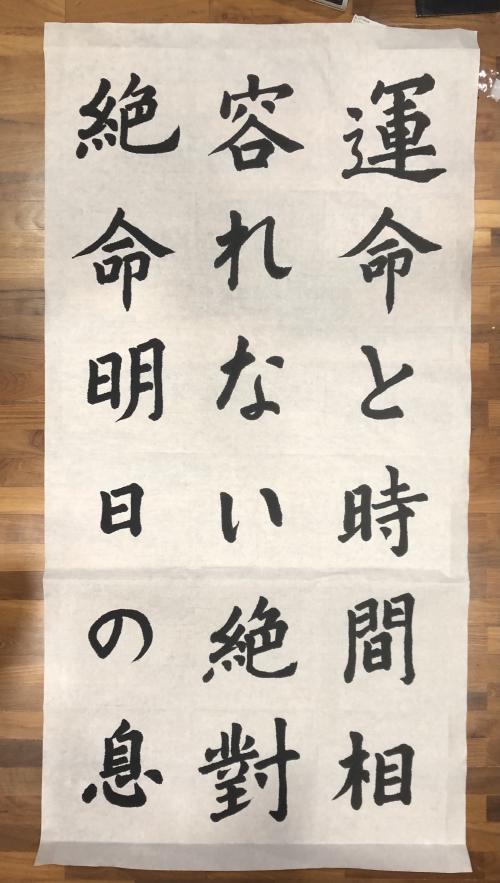 運命と時間相
容れない絶對
絶命明日の息